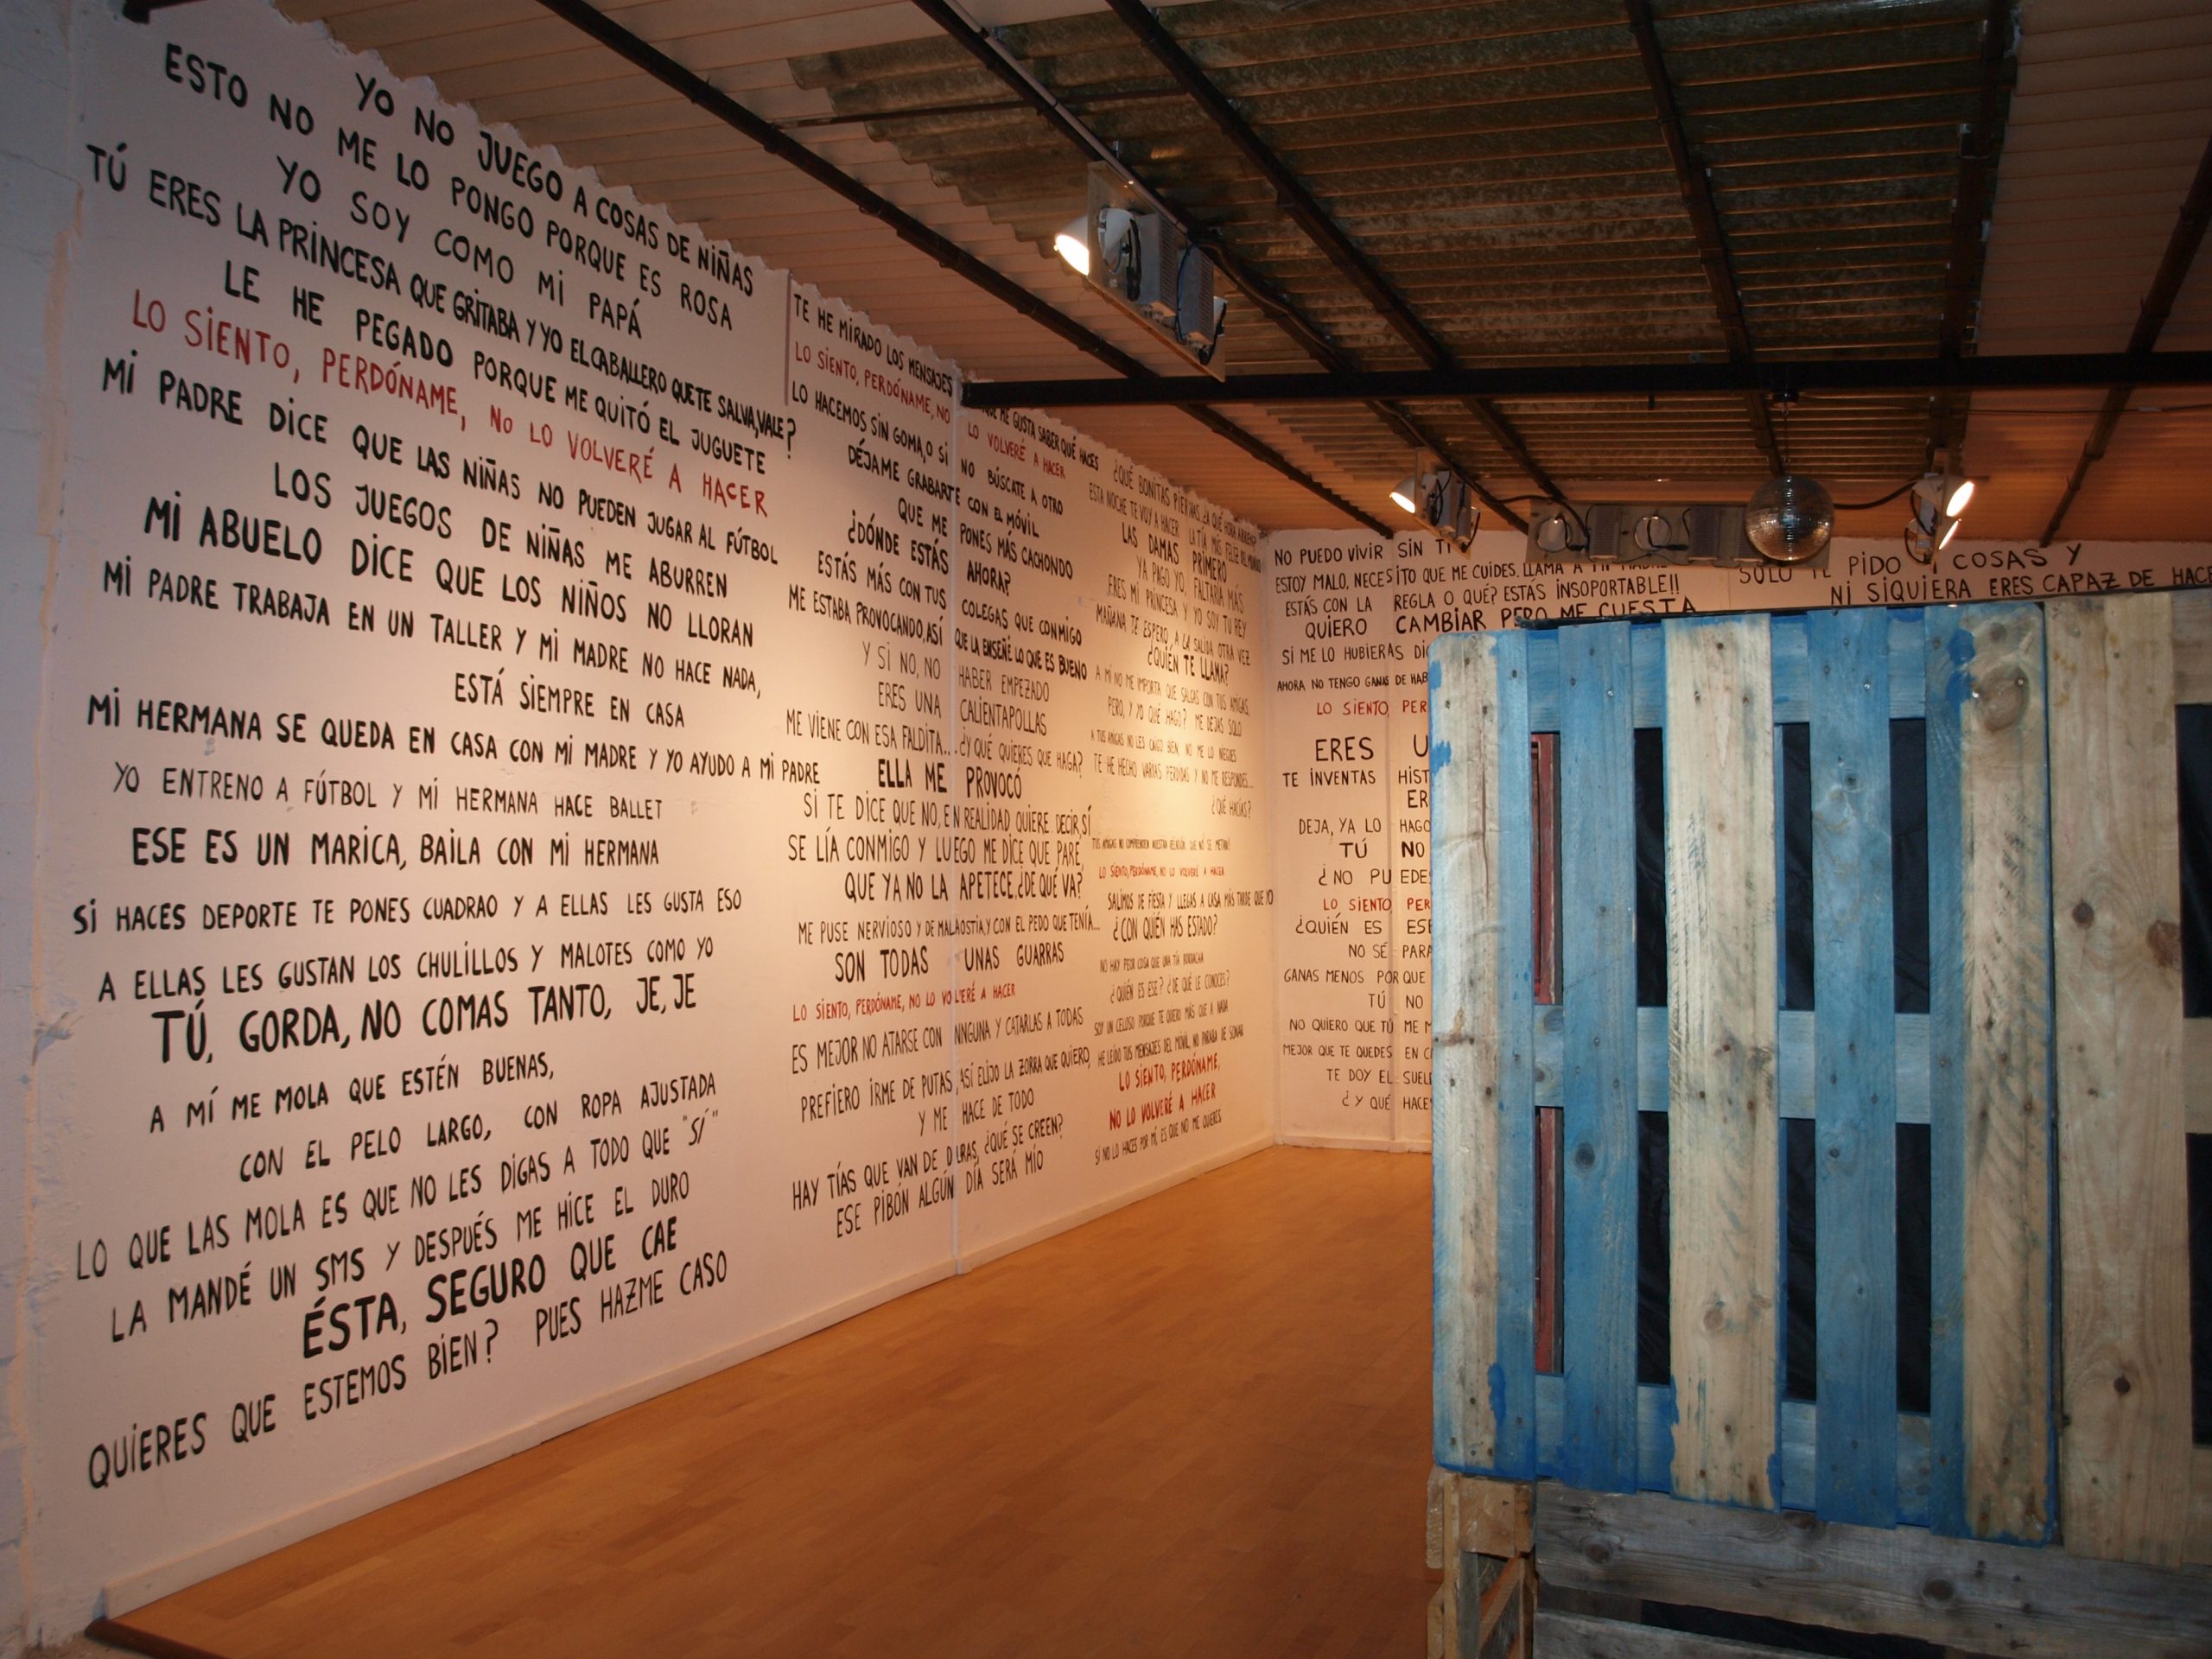 YO NO JUEGO A COSAS DE NIÑAS
ESTO NO ME LO PONGO PORQUE ES ROSA
YO SOY COMO MI PAPÁ
TÚ ERES LA PRINCESA QUE GRITABA Y YO EL CABALLERO QUE TE SALVA, VALE?
LE HE PEGADO PORQUE ME QUITÓ EL JUGUETE
LO SIENTO, PERDÓNAME, NO LO VOLVERÉ A HACER
MI PADRE DICE QUE LAS NIÑAS NO PUEDEN JUGAR AL FÚTBOL
LOS JUEGOS DE NIÑAS ME ABURREN
MI ABUELO DICE QUE LOS NIÑOS NO LLORAN
MI PADRE TRABAJA EN UN TALLER Y MI MADRE NO HACE NADA,
ESTÁ SIEMPRE EN CASA
MI HERMANA SE QUEDA EN CASA CON MI MADRE Y YO AYUDO A MI PADRE
YO ENTRENO A FÚTBOL Y MI HERMANA HACE BALLET
ESE ES UN MARICA, BAILA CON MI HERMANA
SI HACES DEPORTE TE PONES CUADRAO Y A ELLAS LES GUSTA ESO
A ELLAS LES GUSTAN LOS CHULILLOS Y MALOTES COMO YO
TÚ, GORDA, NO COMAS TANTO, JE, JE
A MÍ ME MOLA QUE ESTÉN BUENAS,
CON EL PELO LARGO, CON ROPA AJUSTADA
LO QUE LAS MOLA ES QUE NO LES DIGAS A TODO QUE "SÍ"
LA MANDÉ UN SMS Y DESPUÉS ME HICE EL DURO
ÉSTA, SEGURO QUE CAE
QUIERES QUE ESTEMOS BIEN? PUES HAZME CASO
TE HE MIRADO LOS MENSAJES QUE ME GUSTA SABER QUÉ HACES
LO SIENTO, PERDÓNAME, NO LO VOLVERÉ A HACER
LO HACEMOS SIN GOMA, O SI NO BÚSCATE A OTRO
DÉJAME GRABARTE CON EL MÓVIL
QUE ME PONES MÁS CACHONDO
¿DÓNDE ESTÁS AHORA?
ESTÁS MÁS CON TUS COLEGAS QUE CONMIGO
ME ESTABA PROVOCANDO, ASÍ QUE LA ENSEÑÉ LO QUE ES BUENO
Y SI NO, NO HABER EMPEZADO
ERES UNA CALIENTAPOLLAS
ME VIENE CON ESA FALDITA... ¿Y QUÉ QUIERES QUE HAGA?
ELLA ME PROVOCÓ
SI TE DICE QUE NO, EN REALIDAD QUIERE DECIR, SÍ
SE LÍA CONMIGO Y LUEGO ME DICE QUE PARE,
QUE YA NO LA APETECE, ¿DE QUÉ VA?
ME PUSE NERVIOSO Y DE MALA OSTIA, Y CON EL PEDO QUE TENÍA...
SON TODAS UNAS GUARRAS
LO SIENTO, PERDÓNAME, NO LO VOLVERÉ A HACER
ES MEJOR NO ATARSE CON NINGUNA Y CATARLAS A TODAS
PREFIERO IRME DE PUTAS, ASÍ ELIJO LA ZORRA QUE QUIERO,
Y ME HACE DE TODO
HAY TÍAS QUE VAN DE DURAS, ¿QUÉ SE CREEN?
ESE PIBÓN ALGÚN DÍA SERÁ MÍO
¿QUÉ BONITAS PIERNAS, ¿A QUÉ HORA ABREN?
ESTA NOCHE TE VOY A HACER LA TÍA MÁS FELIZ DEL MUNDO
LAS DAMAS PRIMERO
YA PAGO YO, FALTARÍA MÁS
ERES MI PRINCESA Y YO SOY TU REY
MAÑANA TE ESPERO A LA SALIDA OTRA VEZ
¿QUIÉN TE LLAMA?
A MÍ NO ME IMPORTA QUE SALGAS CON TUS AMIGAS,
PERO, Y YO QUÉ HAGO? ME DEJAS SOLO
A TUS AMIGAS NO LES CAIGO BIEN, NO ME LO NIEGUES
TE HE HECHO VARIAS PERDIDAS Y NO ME RESPONDES...
¿QUÉ HACÍAS?
TUS AMIGAS NO COMPRENDEN NUESTRA RELACIÓN, QUE NO SE METAN!
LO SIENTO, PERDÓNAME, NO LO VOLVERÉ A HACER
SALIMOS DE FIESTA Y LLEGAS A CASA MÁS TARDE QUE YO
¿CON QUIÉN HAS ESTADO?
NO HAY PEOR COSA QUE UNA TÍA BORRACHA
¿QUIÉN ES ESE? ¿DE QUÉ LE CONOCES?
SOY UN CELOSO PORQUE TE QUIERO MÁS QUE A NADA
HE LEÍDO TUS MENSAJES DEL MÓVIL, NO PARABA DE SONAR
LO SIENTO, PERDÓNAME,
NO LO VOLVERÉ A HACER
SI NO LO HACES POR MÍ, ES QUE NO ME QUIERES
NO PUEDO VIVIR SIN TI
ESTOY MALO, NECESITO QUE ME CUIDES. LLAMA A MI MADRE
ESTÁS CON LA REGLA O QUÉ? ESTÁS INSOPORTABLE!!
QUIERO CAMBIAR PERO ME CUESTA
SI ME LO HUBIERAS
AHORA NO TENGO GANAS DE
LO SIENTO,
ERES
TE INVENTAS
DEJA, YA LO HAGO
TÚ NO
¿NO PUEDES
LO SIENTO,
¿QUIÉN ES
NO SÉ PARA
GANAS MENOS PORQUE
TÚ NO
NO QUIERO QUE TÚ ME
MEJOR QUE TE QUEDES EN
TE DOY EL
¿Y QUÉ
SOLO TE PIDO COSAS Y
NI SIQUIERA ERES CAPAZ DE